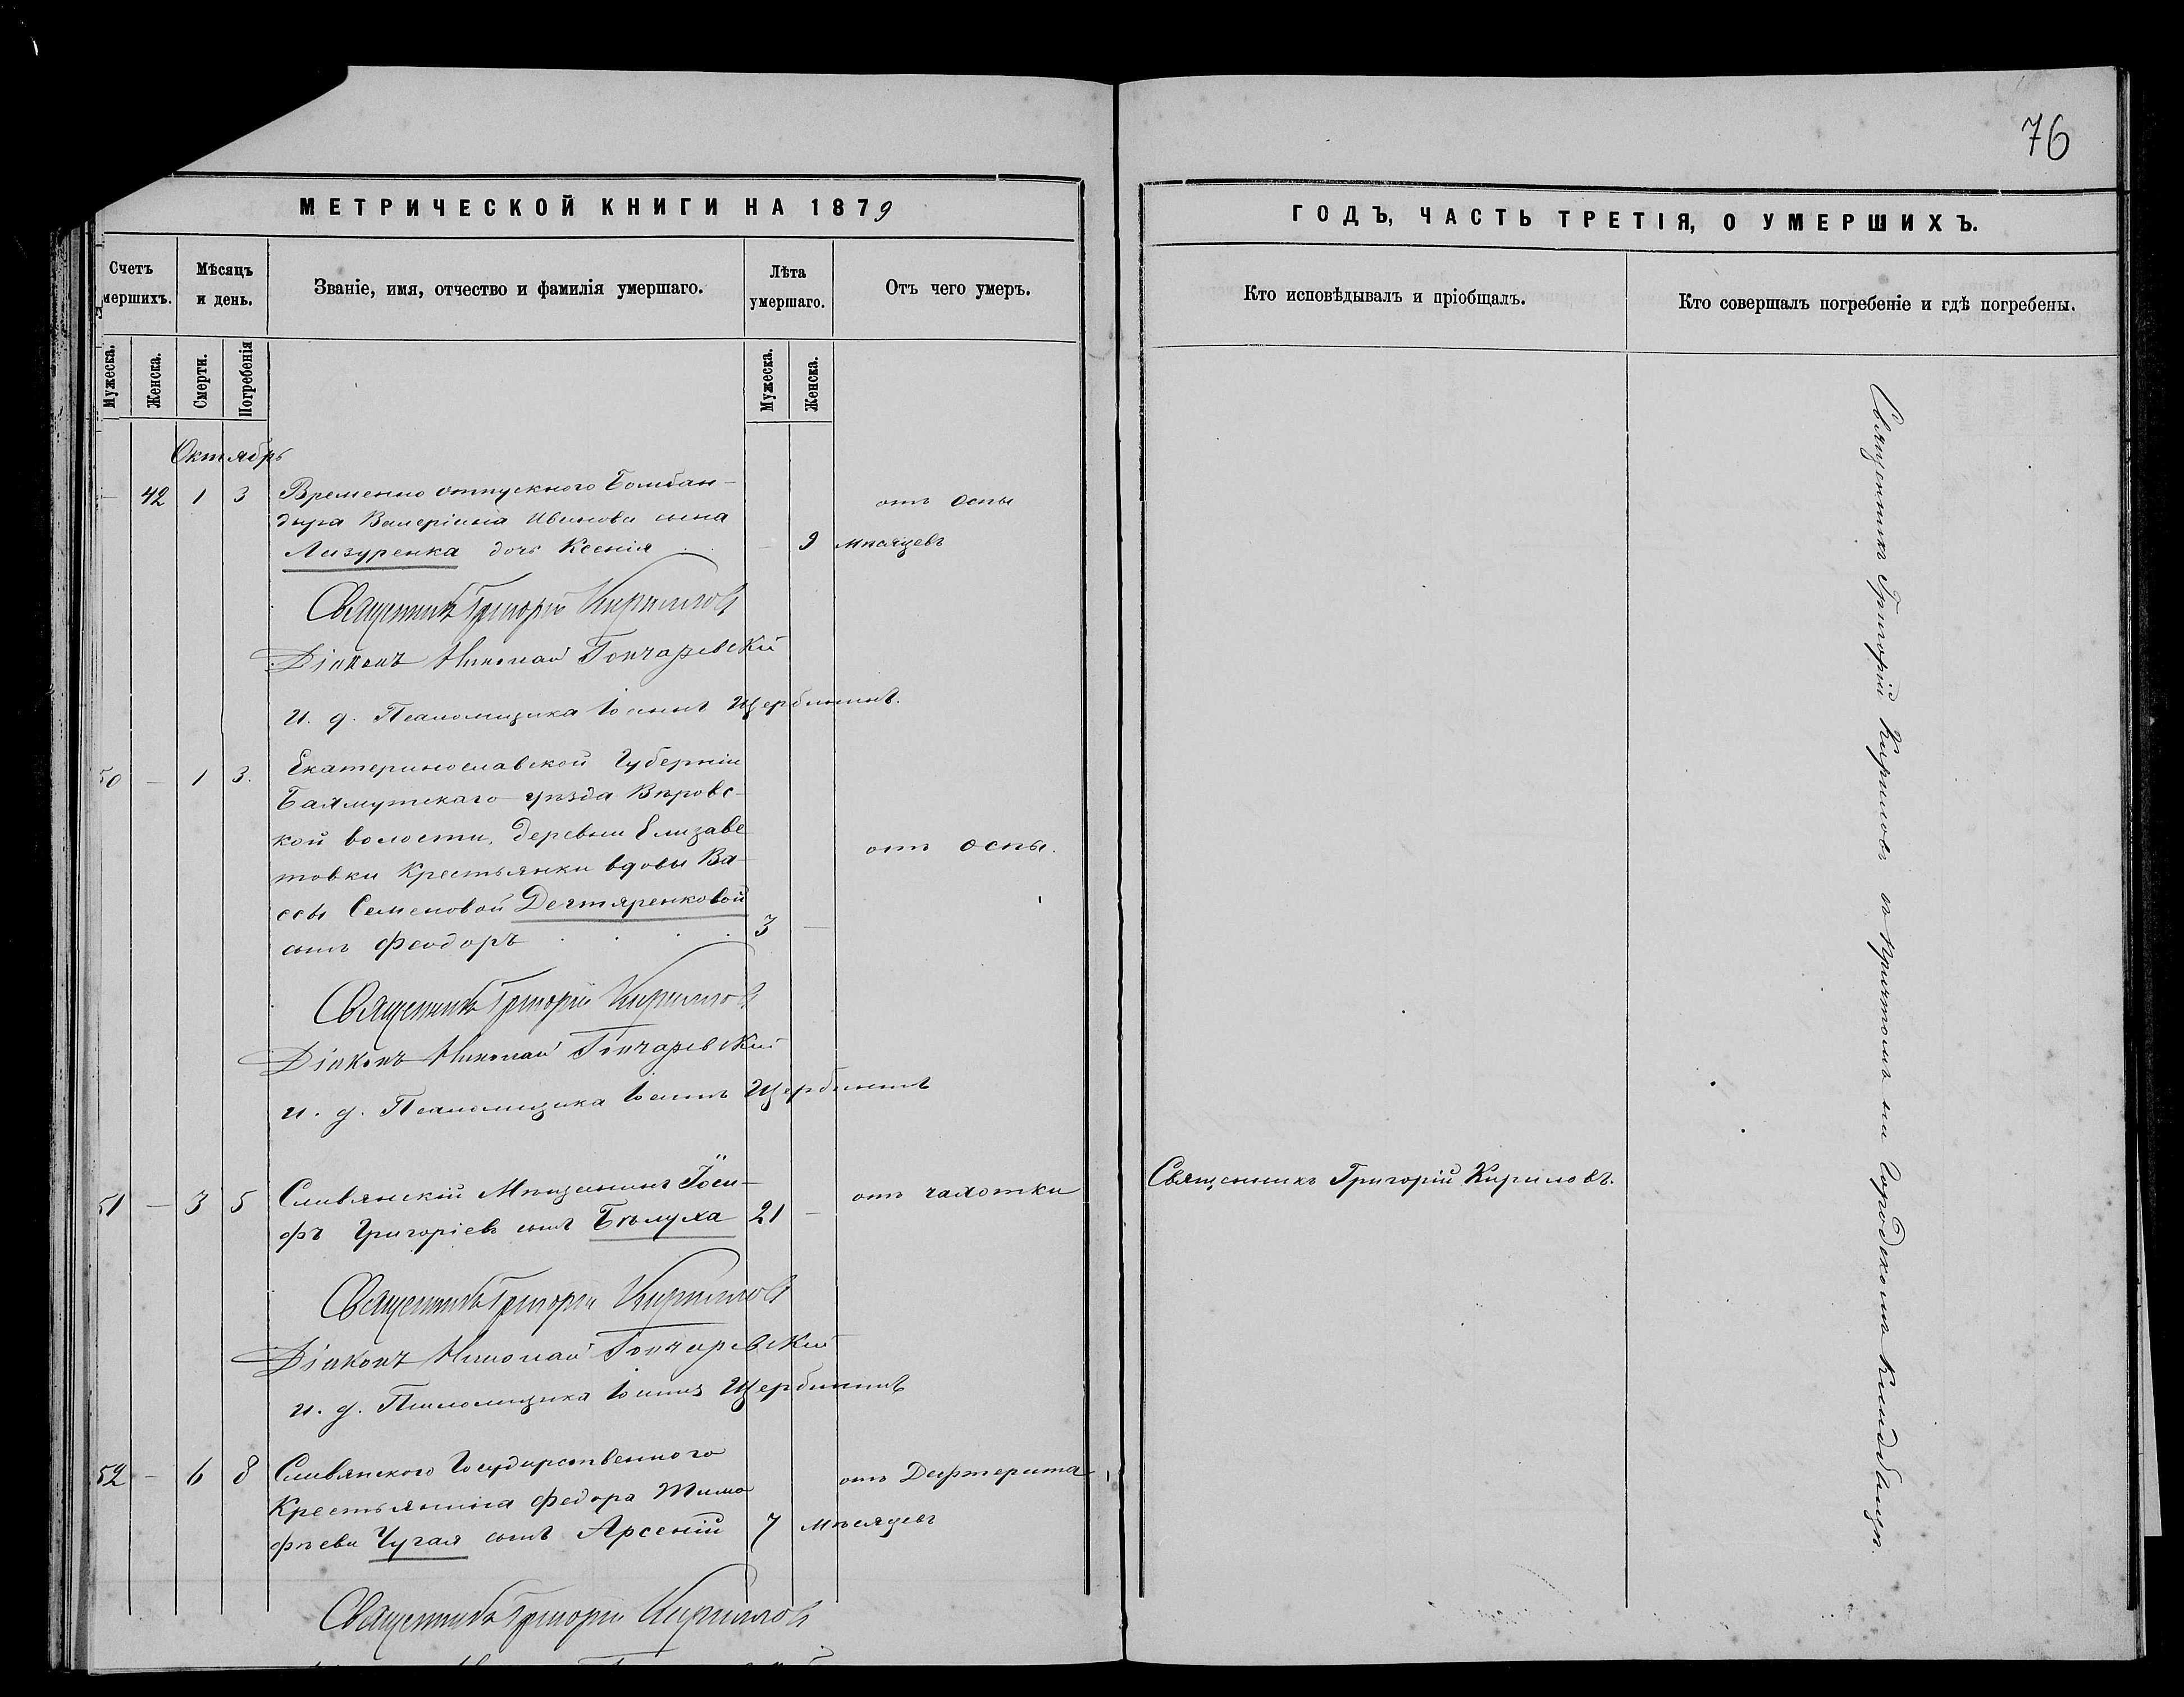 76
МЕТРИЧЕСКОЙ КНИГИ НА 1879
ГОДЪ, ЧАСТЬ ТРЕТІЯ, О УМЕРШИХЪ.
Счетъ умершихъ.
Мѣсяцъ и день.
Званіе, имя, отчество и фамилія умершаго.
Лѣта умершаго.
Отъ чего умеръ.
Кто исповѣдывалъ и пріобщалъ.
Кто совершалъ погребеніе и гдѣ погребены.
Мужеска.
Женска.
Смерти.
Погребенія
Мужеска.
Женска.
Октябрь
— 42 1 3 Временно отпускного Бомбан-
дира Валеріана Иванова сына
отъ оспы
Лазуренка дочь Ксенія — 9 мѣсяцевъ
Священникъ Григорій Кириловъ
Діаконъ Николай Гончаревскій
И. д. Псаломщика Іоаннъ Щербининъ.
50 — 1 3. Екатеринославской Губерніи
Бахмутскаго уѣзда Вѣровс-
кой волости, деревни Елизаве
товки Крестьянки вдовы Ва-
отъ оспы.
ссы Семеновой Дегтяренковой
сынъ Феодоръ . . . . 3 —
Священникъ Григорій Кириловъ
Діаконъ Николай Гончаревскій
И. д. Псаломщика Іоаннъ Щербининъ
51 — 3 5 Славянскій Мѣщанинъ Іоси-
фъ Григоріевъ сынъ Бѣлуха 21 —
отъ чахотки
Священникъ Григорій Кириловъ.
Священникъ Григорій Кириловъ
Діаконъ Николай Гончаревскій
И. д. Псаломщика Іоаннъ Щербининъ
52 — 6 8 Славянского Государственного
отъ Дефтерита
Крестьянина Федора Тимо
фѣева Чугая сынъ Арсеній 7 мѣсяцевъ
Священникъ Григорій Кириловъ
Священникъ Григорій Кириловъ съ причтомъ на Городскомъ Кладбищѣ.